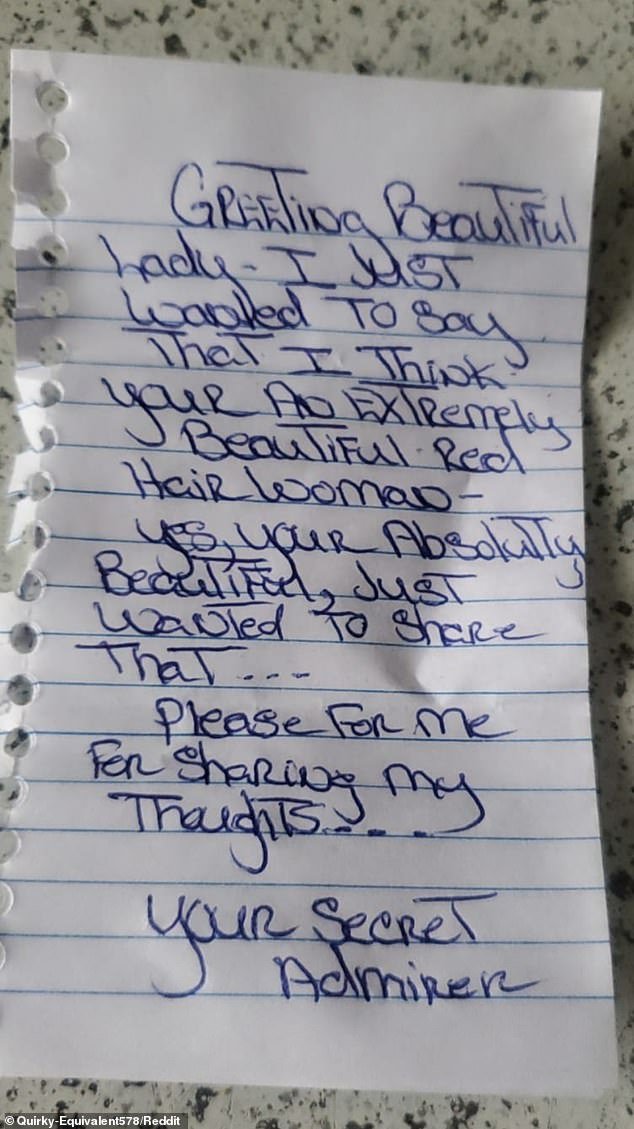 Greeting Beautiful
Lady - I Just
Wanted To Say
That I Think
your An Extremely
Beautiful Red
Hair Woman -
yes, your Absolutly
Beautiful, Just
Wanted To Share
That ....
Please For me
For Sharing my
Thoughts....
your Secret
Admirer
© Quirky-Equivalent578/Reddit